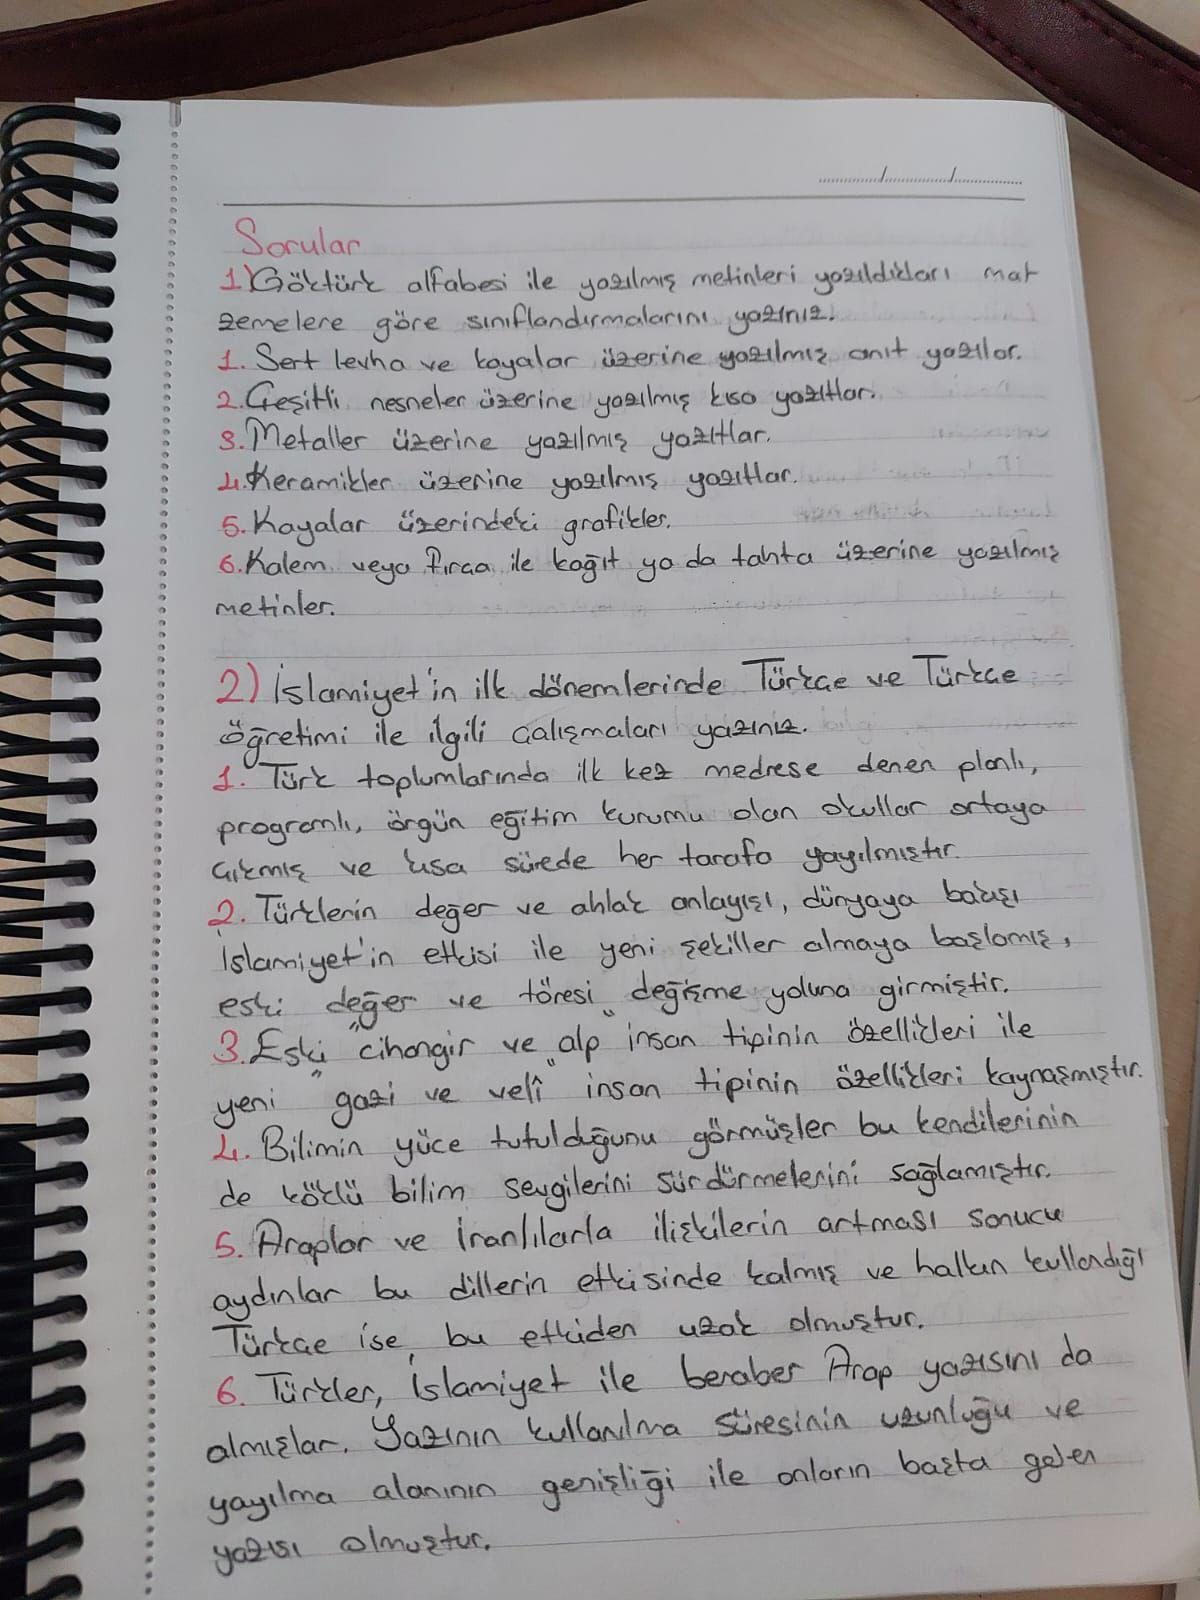 Sorular
1) Göktürk alfabesi ile yazılmış metinleri yazıldıkları mal
zemelere göre sınıflandırmalarını yazınız.
1. Sert levha ve kayalar üzerine yazılmış anıt yazılar.
2. Çeşitli nesneler üzerine yazılmış kısa yazıtlar.
3. Metaller üzerine yazılmış yazıtlar.
4. Keramikler üzerine yazılmış yazıtlar.
5. Kayalar üzerindeki grafikler.
6. Kalem veya fırça ile kağıt ya da tahta üzerine yazılmış
metinler.
2) İslamiyet'in ilk dönemlerinde Türkçe ve Türkçe
öğretimi ile ilgili çalışmaları yazınız.
1. Türk toplumlarında ilk kez medrese denen planlı,
programlı, örgün eğitim kurumu olan okullar ortaya
çıkmış ve kısa sürede her tarafa yayılmıştır.
2. Türklerin değer ve ahlak anlayışı, dünyaya bakışı
İslamiyet'in etkisi ile yeni şekiller almaya başlamış,
eski değer ve töresi değişme yoluna girmiştir.
3. Eski "cihangir ve alp" insan tipinin özellikleri ile
yeni "gazi ve velî" insan tipinin özellikleri kaynaşmıştır.
4. Bilimin yüce tutulduğunu görmüşler bu kendilerinin
de köklü bilim sevgilerini sürdürmelerini sağlamıştır.
5. Araplar ve İranlılarla ilişkilerin artması sonucu
aydınlar bu dillerin etkisinde kalmış ve halkın kullandığı
Türkçe ise, bu etkiden uzak olmuştur.
6. Türkler, İslamiyet ile beraber Arap yazısını da
almışlar. Yazının kullanılma süresinin uzunluğu ve
yayılma alanının genişliği ile onların başta gelen
yazısı olmuştur.